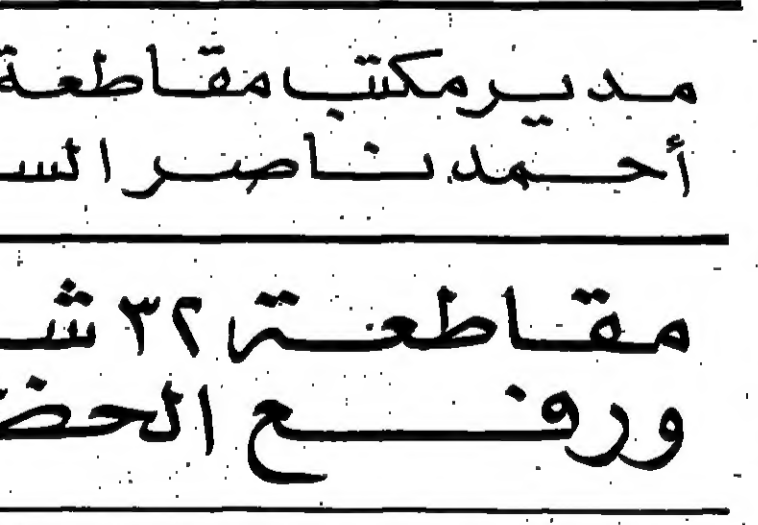 مدير مكتب مقاطعة
أحمد ناصر
مقاطعة ٣٢
ورفع